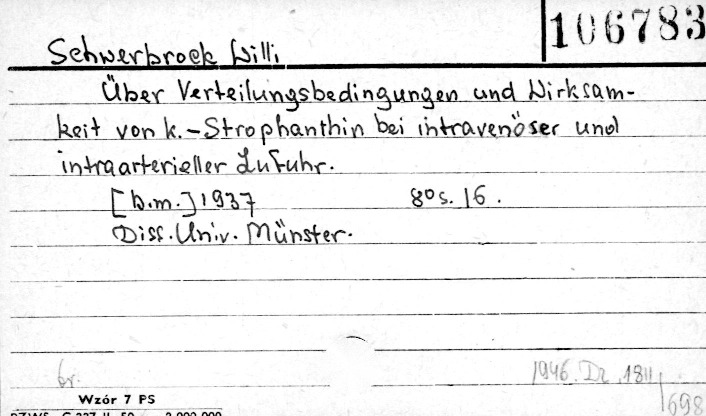 106783
Schwerbrock Willi
Über Verteilungsbedingungen und Wirksam-
keit von k.-Strophanthin bei intravenöser und
intraarterieller Zufuhr.
[b.m.] 1937 8° s. 16.
Diss. Univ. Münster.
1946. Dr. 1811
/698
Wzór 7 PS